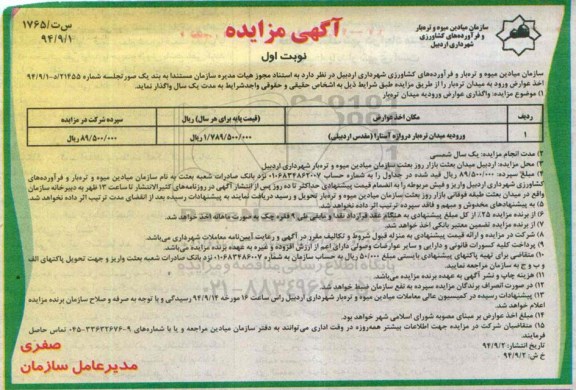 س‌ت/۱۷۶۵
۹۴/۹/۱
آگهی مزایده
نوبت اول
سازمان میادین میوه و تره‌بار
و فرآورده‌های کشاورزی
شهرداری اردبیل
سازمان میادین میوه و تره‌بار و فرآورده‌های کشاورزی شهرداری اردبیل در نظر دارد به استناد مجوز هیات مدیره سازمان مستندا به بند یک صورتجلسه شماره ۲۱۴۵۵/د-۹۴/۹/۱
اخذ عوارض ورود به میدان تره‌بار را از طریق مزایده طبق شرایط ذیل به اشخاص حقیقی و حقوقی واجدشرایط به مدت یک سال واگذار نماید.
۱) موضوع مزایده: واگذاری عوارض ورودیه میدان تره‌بار
ردیف مکان اخذ عوارض (قیمت پایه برای هر سال) ریال سپرده شرکت در مزایده
۱ ورودیه میدان تره‌بار دروازه آستارا (مقدس اردبیلی) ۱/۷۸۹/۵۰۰/۰۰۰ ریال ۸۹/۵۰۰/۰۰۰ ریال
۲) مدت انجام مزایده: یک سال شمسی
۳) محل مزایده: اردبیل میدان بعثت بازار روز بعثت سازمان میادین میوه و تره‌بار شهرداری اردبیل
۴) مبلغ سپرده: ۸۹/۵۰۰/۰۰۰ ریال قید شده در جداول را به شماره حساب ۰۱۰۶۸۳۴۸۶۲۰۰۷ نزد بانک صادرات شعبه بعثت به نام سازمان میادین میوه و تره‌بار و فرآورده‌های
کشاورزی شهرداری اردبیل واریز و فیش مربوطه را به انضمام قیمت پیشنهادی حداکثر تا ده روز پس از انتشار آگهی در روزنامه‌های کثیرالانتشار تا ساعت ۱۳ ظهر به دبیرخانه سازمان
واقع در میدان بعثت طبقه فوقانی بازار روز بعثت سازمان میادین میوه و تره‌بار تحویل و رسید دریافت نمایند به پیشنهادات رسیده بعد از انقضای مدت ترتیب اثر داده نخواهد شد.
۵) به پیشنهادهای مخدوش و مبهم و فاقد سپرده ترتیب اثر داده نخواهد شد.
۶) از برنده مزایده ۲۵٪ از کل مبلغ پیشنهادی به هنگام عقد قرارداد نقدا و مابقی طی ۹ فقره چک به صورت ماهانه اخذ خواهد شد.
۷) از برنده مزایده تضمین معتبر بانکی اخذ خواهد شد.
۸) شرکت در مزایده و ارائه قیمت پیشنهادی به منزله قبول شروط و تکالیف مقرر در آگهی و رعایت آیین‌نامه معاملات شهرداری می‌باشد.
۹) پرداخت کلیه کسورات قانونی و دارایی و سایر عوارضات وصولی دارای اعم از ارزش افزوده و غیره به عهده برنده مزایده می‌باشد.
۱۰) متقاضی برای تهیه پاکتهای پیشنهادی بایستی مبلغ ۵۰/۰۰۰ ریال به حساب سازمان به شماره ۰۱۰۶۸۳۴۸۶۰۰۷ نزد بانک صادرات شعبه بعثت واریز و جهت تحویل پاکتهای الف
و ب و ج به سازمان مراجعه نمایید.
۱۱) هزینه چاپ و نشر آگهی به عهده برنده مزایده می‌باشد.
۱۲) در صورت انصراف برندگان مزایده سپرده به نفع سازمان ضبط خواهد شد.
۱۳) پیشنهادات رسیده در کمیسیون عالی معاملات میادین میوه و تره‌بار شهرداری اردبیل راس ساعت ۱۶ مورخه ۹۴/۹/۱۴ رسیدگی و با توجه به صرفه و صلاح سازمان برنده مزایده
اعلام خواهد شد.
۱۴) مبلغ اخذ عوارض بر مبنای مصوبه شورای اسلامی شهر خواهد بود.
۱۵) متقاضیان شرکت در مزایده جهت اطلاعات بیشتر همه‌روزه در وقت اداری می‌توانند به دفتر سازمان میادین مراجعه و یا با شماره‌های ۹-۳۳۶۳۲۶۷۶-۰۴۵ تماس حاصل
فرمایند.
تاریخ انتشار: ۹۴/۹/۲
خ ش: ۹۴/۹/۲
صفری
مدیرعامل سازمان